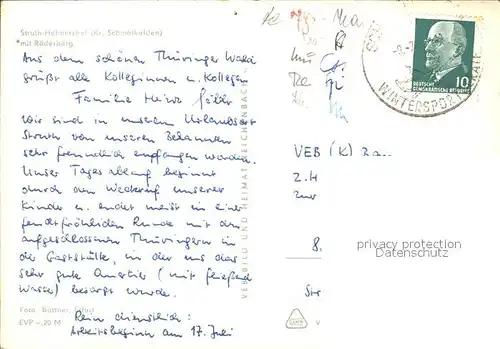 Struth-Helmershof (Kr. Schmalkalden)
mit Röderberg
Aus dem schönen Thüringer Wald
grüßt alle Kolleginnen u. Kollegen
Familie Heinz
Wir sind in unserem Urlaubsort
Struth von unseren Bekannten
sehr freundlich empfangen worden.
Unser Tagesablauf beginnt
durch den Weckruf unserer
Kinder u. endet meist in einer
feuchtfröhlichen Runde mit den
aufgeschlossenen Thüringern in
der Gaststätte, in der uns das
sehr gute Quartier (mit fließend
Wasser) besorgt wurde.
Foto: Büttner, Erfurt
EVP -,20 M
Rein dienstlich:
Arbeitsbeginn am 17. Juli
VEB BILD UND HEIMAT REICHENBACH
DEUTSCHE
DEMOKRATISCHE REPUBLIK
10
WINTERSPORT
VEB (K)
z.H
8.
Str
V
privacy protection
Datenschutz